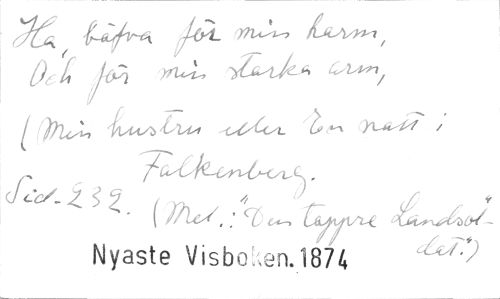 Ha, bäfva för min harm,
Och för min starka arm,
(Min hustru eller En natt i
Falkenberg.
Sid. 232. (Mel.: "Den tappre Landsol-
dat.")
Nyaste Visboken. 1874